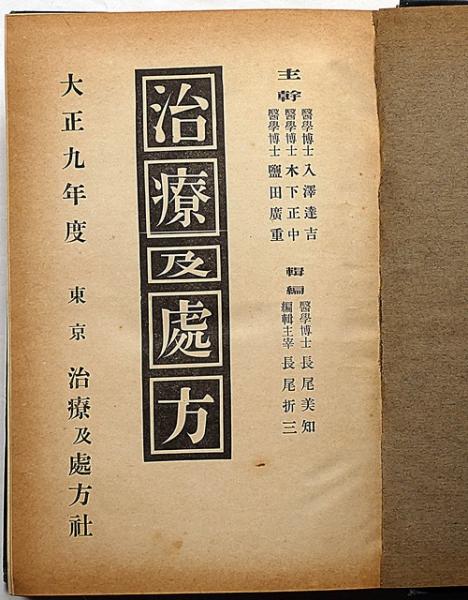 主幹
醫學博士 入澤達吉
醫學博士 木下正中
醫學博士 鹽田廣重
輯編
醫學博士 長尾美知
編輯主宰 長尾折三
治療及處方
大正九年度
東京 治療及處方社